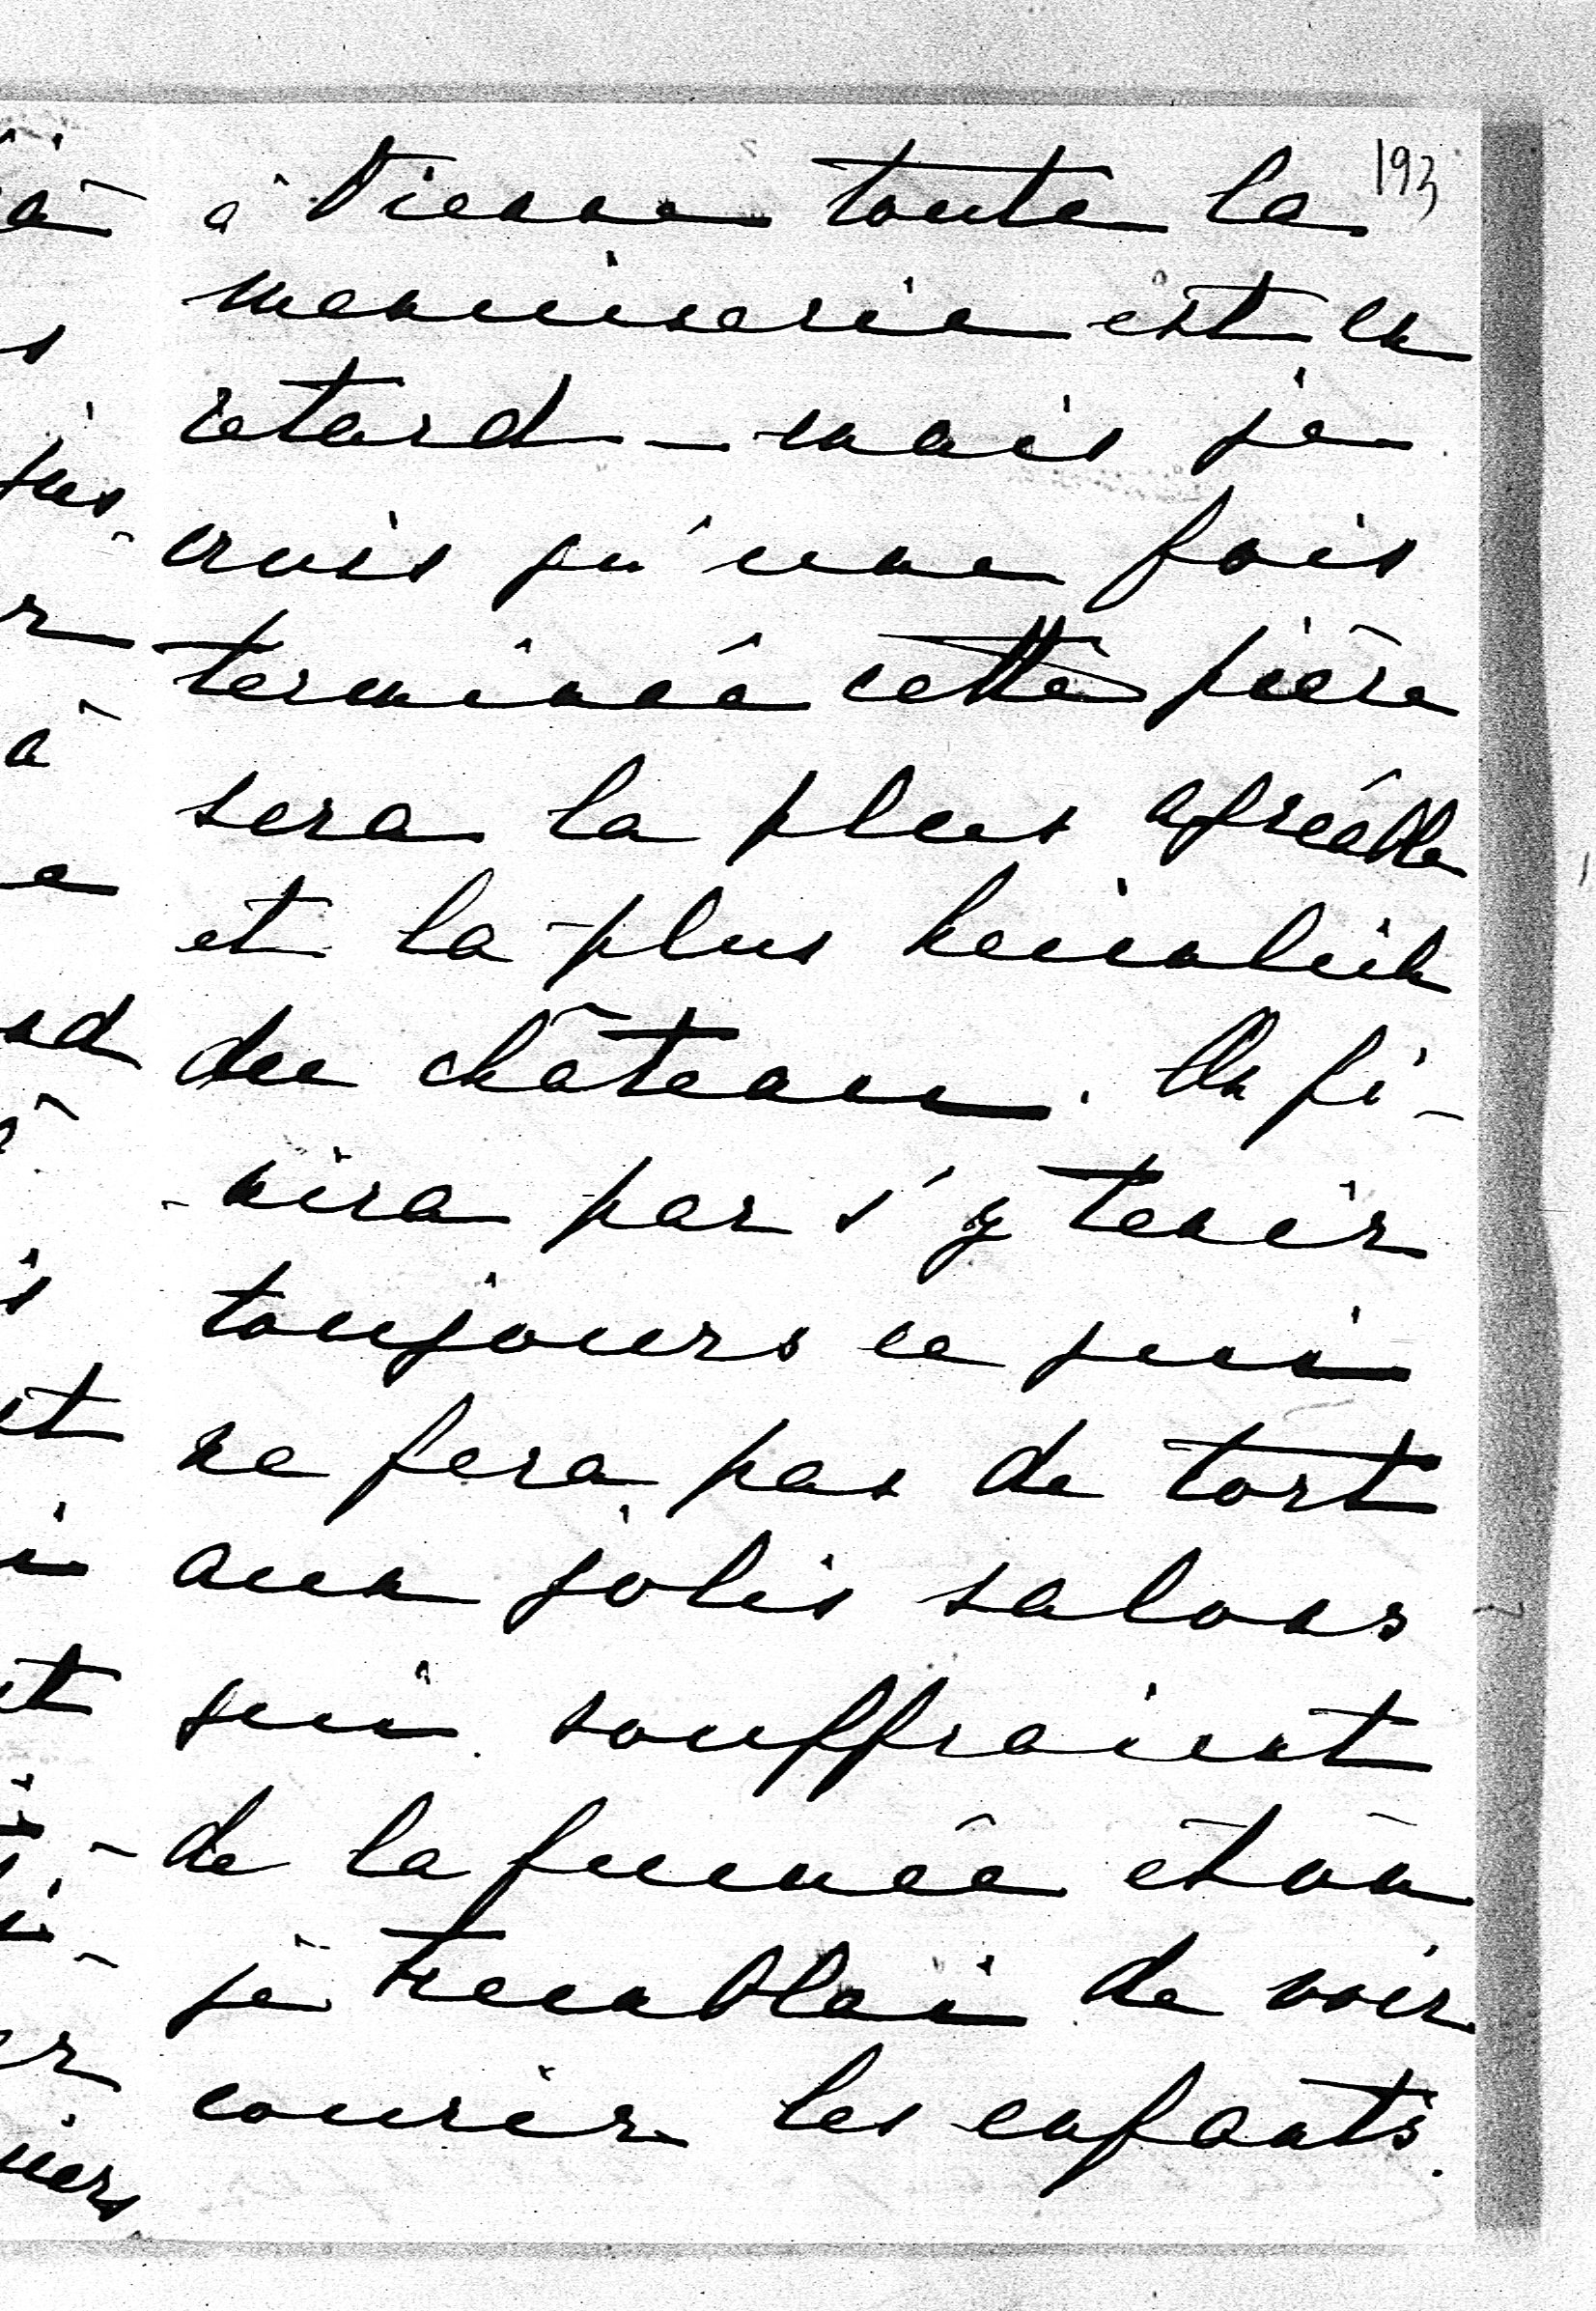 193
à Vienne toute la
menuiserie est en
retard – mais je
crois qu'une fois
terminée cette pièce
sera la plus agréable
et la plus heimlich
du château. On fi-
-nira par s'y tenir
toujours ce qui
ne fera pas de tort
aux jolis salons
qui souffraient
de la fumée et où
je tremblai de voir
courir les enfants.